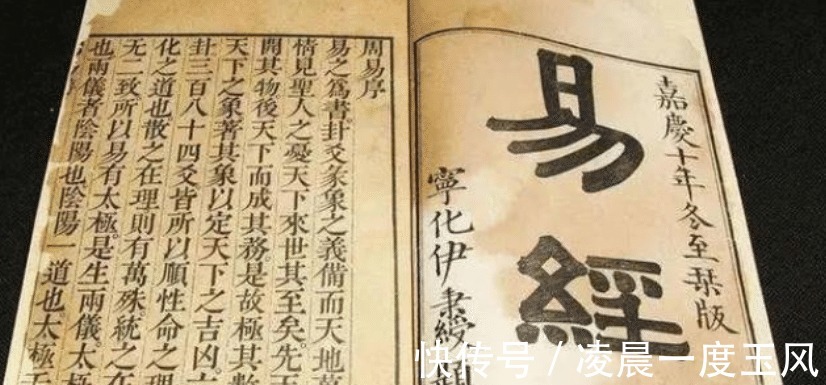 嘉慶十年冬至栞版
易經
寧化伊秉綬
周易序
易之爲書。卦爻彖象之義備而天地萬
情見聖人之憂天下來世其至矣。先
開其物後天下而成其務。是故極其數
天下之象著其象以定天下之吉凶
卦三百八十四爻皆所以順性命之理
化之道也散之在理則有萬殊。統之
無二致所以易有太極。是生兩儀。太
也兩儀者陰陽也陰陽一道也太極
快传号 / 凌晨一度玉风